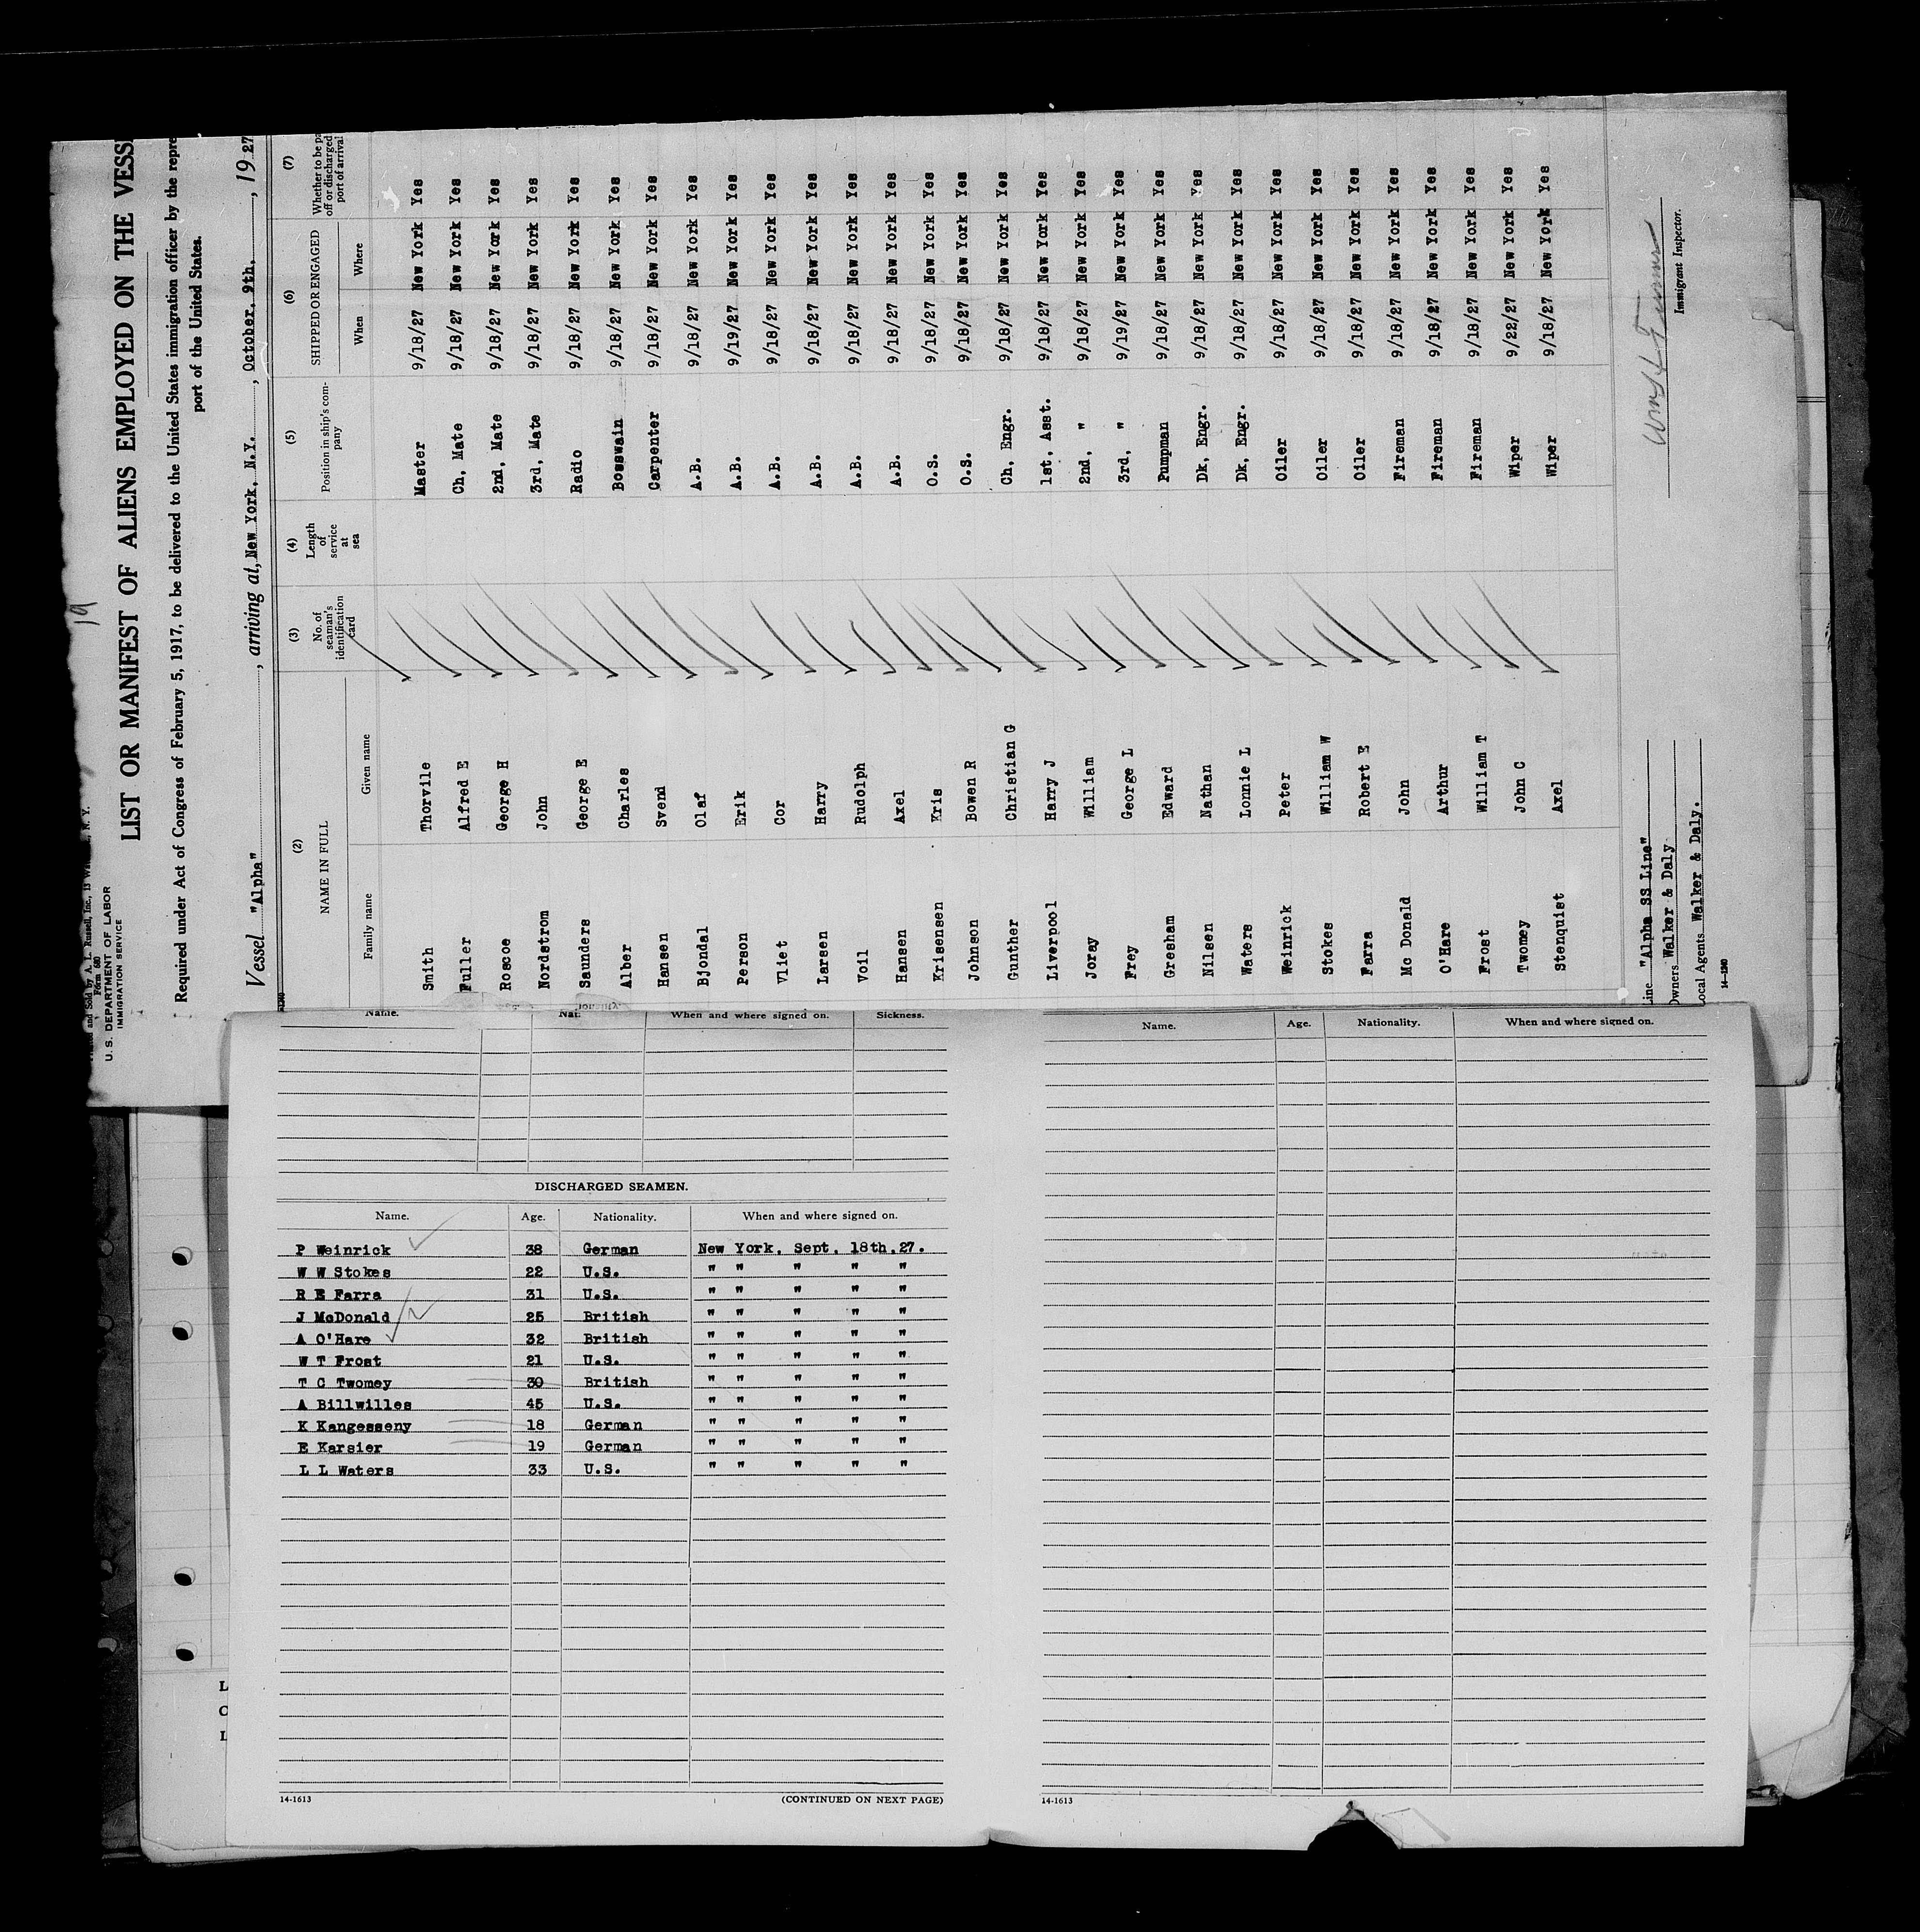 19
U.S. DEPARTMENT OF LABOR
IMMIGRATION SERVICE
LIST OR MANIFEST OF ALIENS EMPLOYED ON THE
Required under Act of Congress of February 5, 1917, to be delivered to the United States immigration officer by the
port of the United States.
Vessel "Alpha", arriving at, New York, N.Y., October. 9th., 1927
(2) (3) (4) (5) (6) (7)
NAME IN FULL No. of seaman's identification card Length of service at sea Position in ship's company SHIPPED OR ENGAGED Whether to be off or discharged port of arrival
Family name Given name When Where
Smith Thorvile Master 9/18/27 New York Yes
Fuller Alfred E Ch, Mate 9/18/27 New York Yes
Roscoe George H 2nd, Mate 9/18/27 New York Yes
Nordstrom John 3rd, Mate 9/18/27 New York Yes
Saunders George E Radio 9/18/27 New York Yes
Alber Charles Bosswain 9/18/27 New York Yes
Hansen Svend Carpenter 9/18/27 New York Yes
Bjondal Olaf A.B. 9/18/27 New York Yes
Person Erik A.B. 9/19/27 New York Yes
Vliet Cor A.B. 9/18/27 New York Yes
Larsen Harry A.B. 9/18/27 New York Yes
Voil Rudolph A.B. 9/18/27 New York Yes
Hansen Axel A.B. 9/18/27 New York Yes
Krisensen Kris O.S. 9/18/27 New York Yes
Johnson Bowen R O.S. 9/18/27 New York Yes
Gunther Christian G Ch, Engr. 9/18/27 New York Yes
Liverpool Harry J 1st, Asst. 9/18/27 New York Yes
Joray William 2nd, " 9/18/27 New York Yes
Frey George L 3rd, " 9/19/27 New York Yes
Gresham Edward Pumpman 9/18/27 New York Yes
Nilsen Nathan Dk, Engr. 9/18/27 New York Yes
Waters Lonnie L Dk, Engr. 9/18/27 New York Yes
Weinrick Peter Oiler 9/18/27 New York Yes
Stokes William W Oiler 9/18/27 New York Yes
Farra Robert E Oiler 9/18/27 New York Yes
Mc Donald John Fireman 9/18/27 New York Yes
O'Hare Arthur Fireman 9/18/27 New York Yes
Frost William T Fireman 9/18/27 New York Yes
Twomey John C Wiper 9/22/27 New York Yes
Stenquist Axel Wiper 9/18/27 New York Yes
Line "Alpha SS Line"
Owners Walker & Daly
Local Agents Walker & Daly.
14-1240
Immigrant Inspector.
Name. When and where signed on. Sickness.
DISCHARGED SEAMEN.
Name. Age. Nationality. When and where signed on.
P Weinrick 38 German New York, Sept, 18th,27.
W W Stokes 22 U.S. " " " " "
R E Farra 31 U.S. " " " " "
J McDonald 25 British " " " " "
A O'Hare 32 British " " " " "
W T Frost 21 U.S. " " " " "
T C Twomey 30 British " " " " "
A Billwilles 45 U.S. " " " " "
K Kangesseny 18 German " " " " "
E Karsier 19 German " " " " "
L L Waters 33 U.S. " " " " "
14-1613 (CONTINUED ON NEXT PAGE)
Name. Age. Nationality. When and where signed on.
14-1613